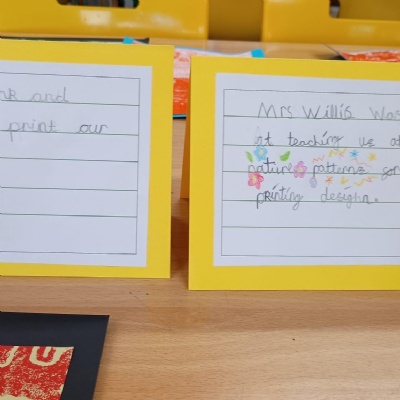 nk and
print our
Mrs Willis Was
at teaching us
nature patterns
printing design.